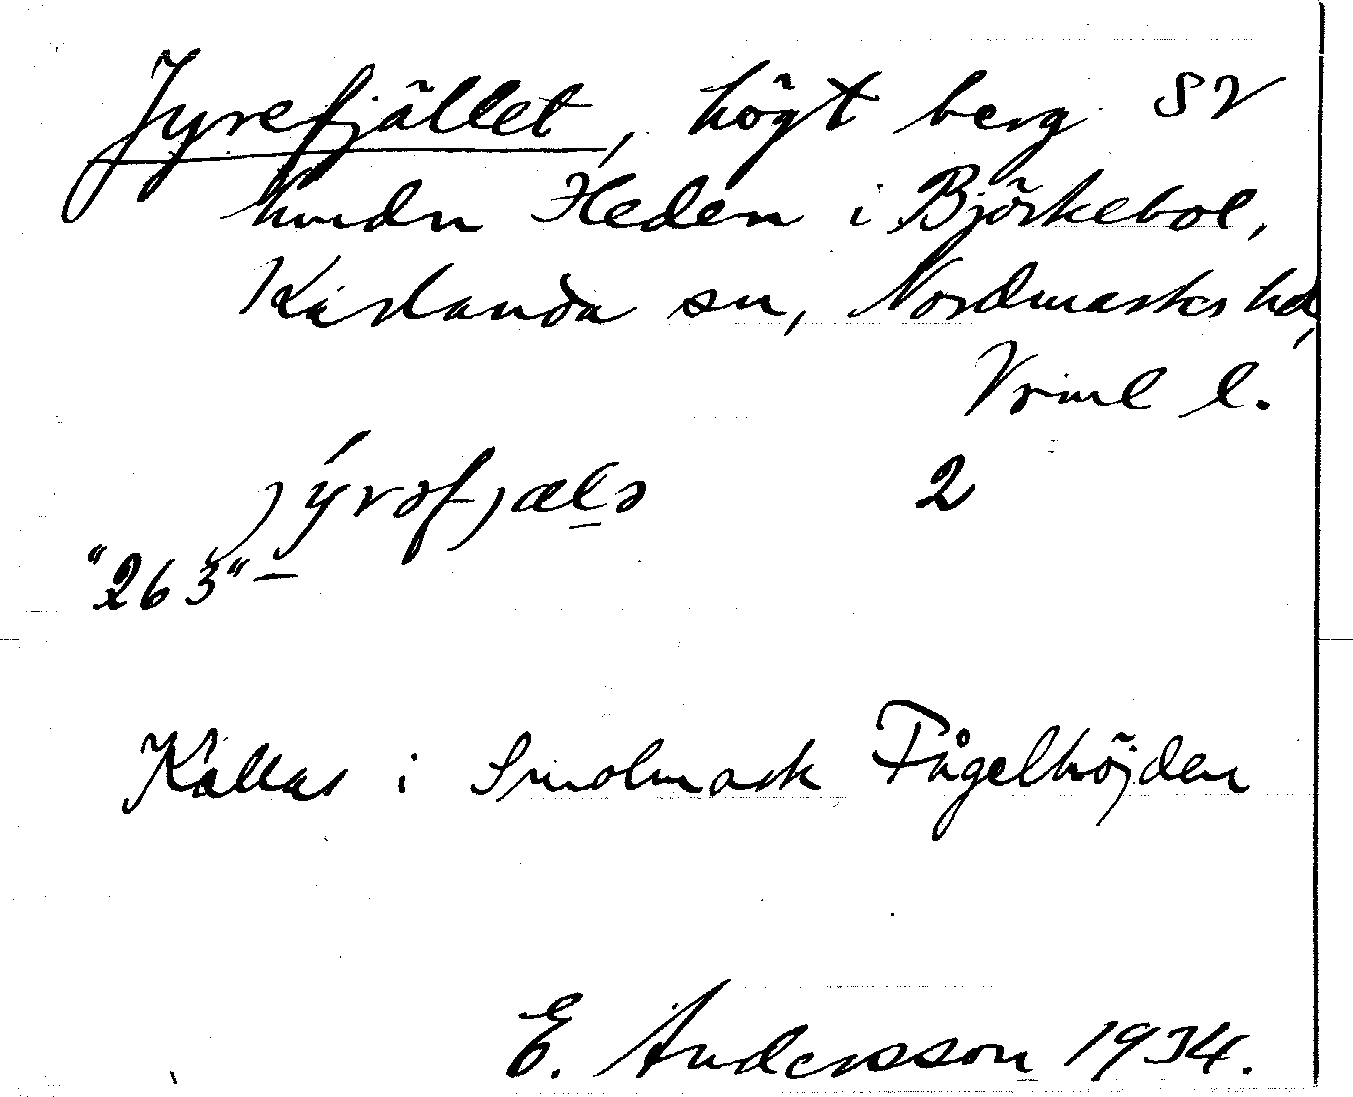 Jyrefjället, högt berg SV
om Heden i Björkebol,
Karlanda sn, Nordmarks hd,
Vrml l.
jýrəfjælə 2
"263"
Kallas i Smolmark Fågelhöjden
E. Andersson 1934.